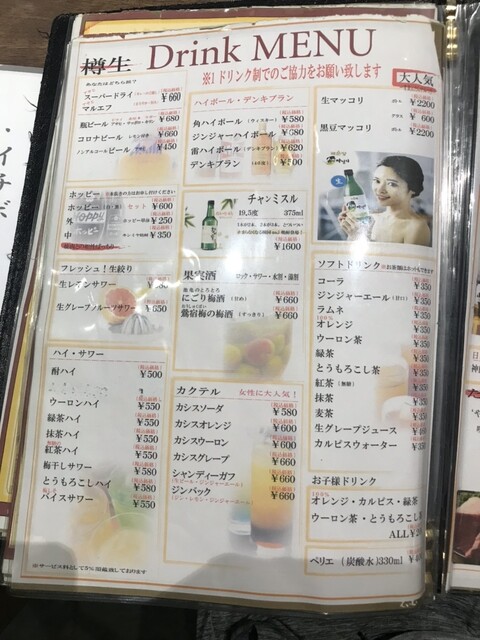 樽生 Drink MENU
※1ドリンク制でのご協力をお願い致します
あなたはどちら派?
スーパードライ ¥660
マルエフ
瓶ビール ¥680
コロナビール ¥660
ノンアルコールビール ¥450
ホッピー
ホッピー セット ¥600
外 ¥250
中 ¥350
フレッシュ!生絞り
生レモンサワー
生グレープフルーツサワー ¥650
ハイ・サワー
酎ハイ ¥500
ウーロンハイ ¥550
緑茶ハイ ¥550
抹茶ハイ ¥550
紅茶ハイ ¥550
梅干しサワー ¥580
とうもろこしハイ ¥580
バイスサワー ¥550
※サービス料として5%頂戴致しております
ハイボール・デンキブラン
角ハイボール (ウィスキー) ¥580
ジンジャーハイボール ¥380
雷ハイボール (デンキブラン) ¥620
デンキブラン ¥500
チャンミスル
19.5度 375ml
¥1600
果実酒 ロック・サワー・水割・湯割
にごり梅酒 (甘め) ¥660
鶯宿梅の梅酒 (すっきり) ¥660
カクテル 女性に大人気!
カシスソーダ ¥580
カシスオレンジ ¥600
カシスウーロン ¥600
カシスグレープ ¥660
シャンディーガフ ¥660
(生ビール・ジンジャーエール)
ジンバック ¥660
(ジン・レモン・ジンジャーエール)
大人気
生マッコリ ¥2200
¥600
黒豆マッコリ ¥2200
生
ソフトドリンク
コーラ ¥350
ジンジャーエール (甘口) ¥350
ラムネ ¥350
100%
オレンジ ¥350
ウーロン茶 ¥350
緑茶 ¥350
とうもろこし茶 ¥350
紅茶 (無糖) ¥350
抹茶 ¥350
麦茶 ¥350
生グレープジュース
カルピスウォーター
お子様ドリンク
100%
オレンジ・カルピス・緑茶
ウーロン茶・とうもろこし
ペリエ (炭酸水)330ml